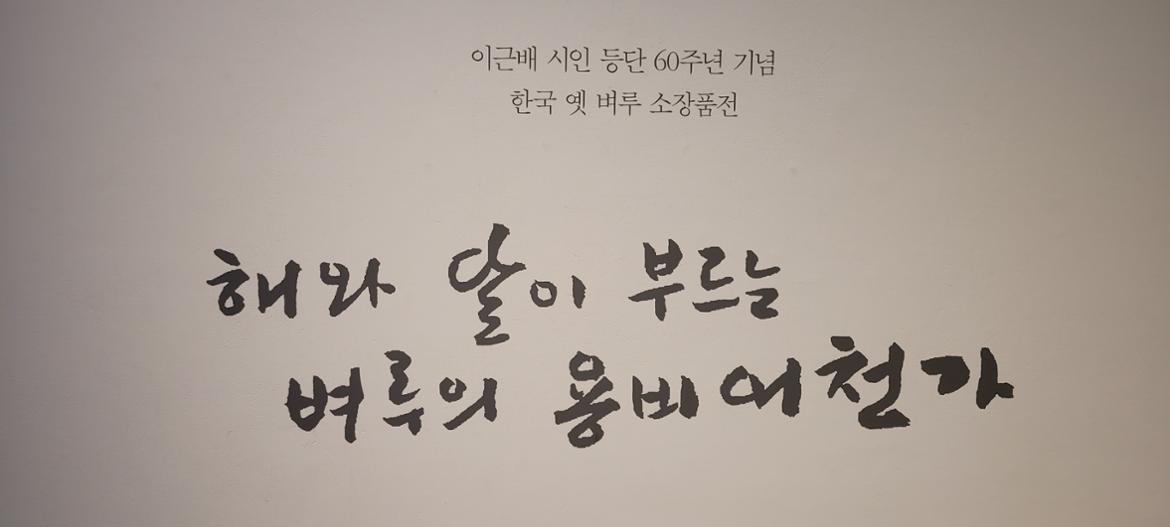 이근배 시인 등단 60주년 기념
한국 옛 벼루 소장품전
해와 달이 부르는
벼루의 용비어천가